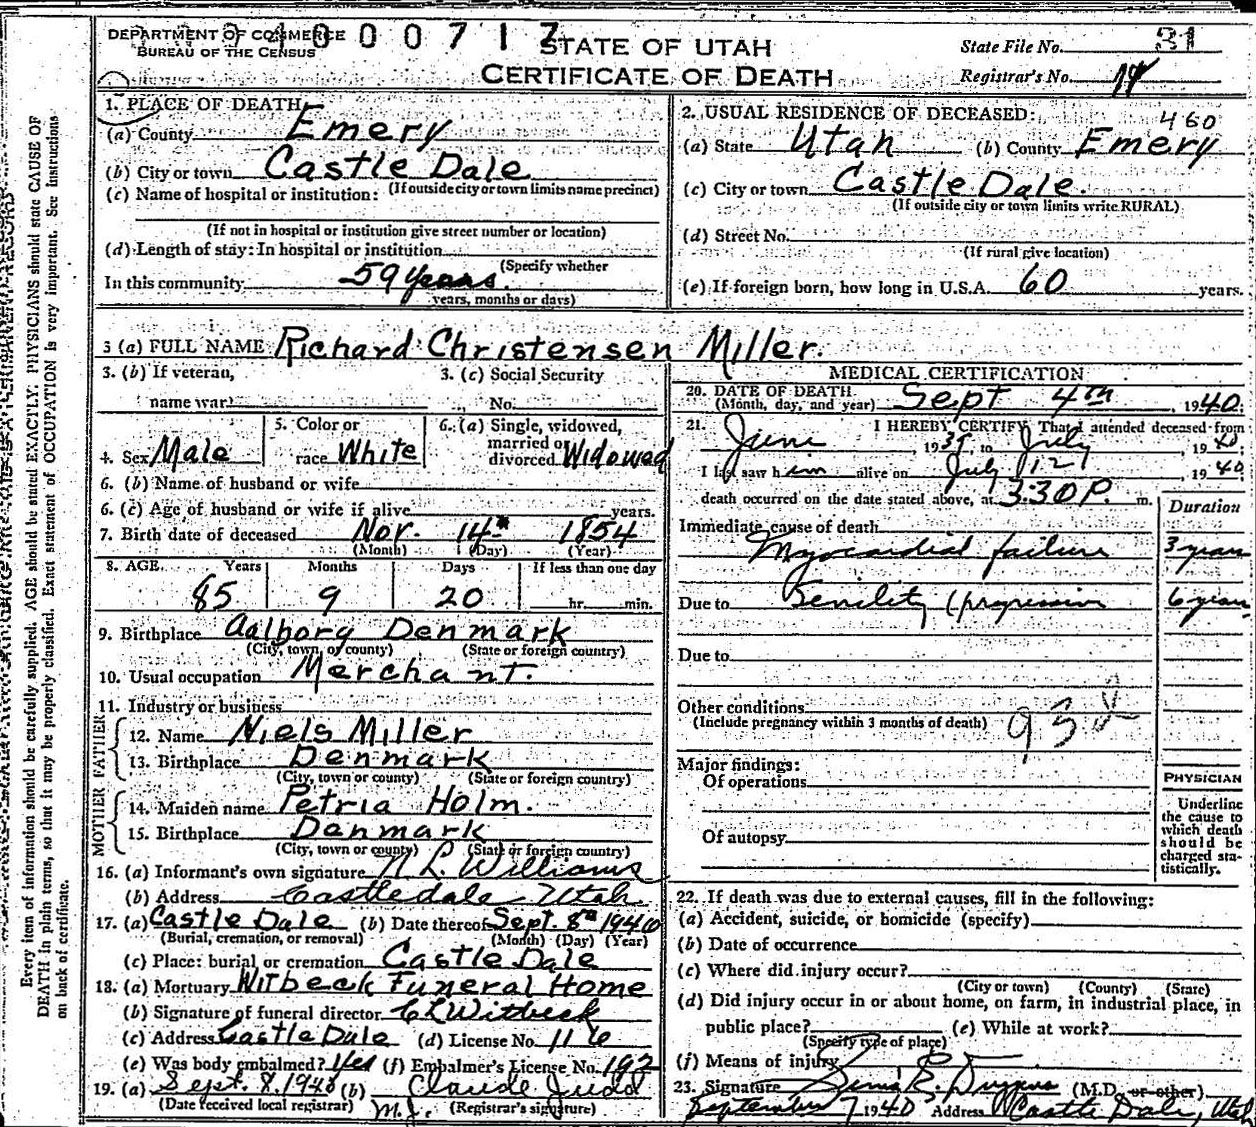 DEPARTMENT OF COMMERCE
BUREAU OF THE CENSUS
000717
STATE OF UTAH
CERTIFICATE OF DEATH
State File No. 31
Registrar's No. 14
1. PLACE OF DEATH
(a) County Emery
(b) City or town Castle Dale
(If outside city or town limits name precinct)
(c) Name of hospital or institution:
(If not in hospital or institution give street number or location)
(d) Length of stay: In hospital or institution
(Specify whether
In this community 59 years.
years, months or days)
2. USUAL RESIDENCE OF DECEASED:
460
(a) State Utah (b) County Emery
(c) City or town Castle Dale.
(If outside city or town limits write RURAL)
(d) Street No.
(If rural give location)
(e) If foreign born, how long in U.S.A. 60 years.
3 (a) FULL NAME Richard Christensen Miller.
3. (b) If veteran, 3. (c) Social Security
name war No.
4. Sex Male
5. Color or race White
6. (a) Single, widowed, married or divorced Widowed
6. (b) Name of husband or wife
6. (c) Age of husband or wife if alive years.
7. Birth date of deceased Nov. 14th 1854
(Month) (Day) (Year)
8. AGE Years Months Days If less than one day
85 9 20 hr. min.
9. Birthplace Aalborg Denmark
(City, town, or county) (State or foreign country)
10. Usual occupation Merchant.
11. Industry or business
FATHER
12. Name Niels Miller
13. Birthplace Denmark
(City, town or county) (State or foreign country)
MOTHER
14. Maiden name Petria Holm.
15. Birthplace Denmark
(City, town or county) (State or foreign country)
16. (a) Informant's own signature N. L. Williams
(b) Address Castledale Utah
17. (a) Castle Dale (b) Date thereof Sept. 8th 1940
(Burial, cremation, or removal) (Month) (Day) (Year)
(c) Place: burial or cremation Castle Dale
18. (a) Mortuary Witbeck Funeral Home
(b) Signature of funeral director C L Witbeck
(c) Address Castle Dale (d) License No. 116
(e) Was body embalmed? Yes (f) Embalmer's License No. 192
19. (a) Sept. 8, 1940 (b) Claude Judd
(Date received local registrar) (Registrar's signature)
MEDICAL CERTIFICATION
20. DATE OF DEATH
(Month, day, and year) Sept 4th, 1940.
21. I HEREBY CERTIFY, That I attended deceased from
June, 193 to July, 1940.
I last saw him alive on July 12, 1940
death occurred on the date stated above, at 3:30 P. m.
Duration
Immediate cause of death
Myocardial failure 3 years
Due to Senility (progressive 6 years
Due to
Other conditions
(Include pregnancy within 3 months of death)
Major findings:
Of operations
Of autopsy
PHYSICIAN
Underline
the cause to
which death
should be
charged sta-
tistically.
22. If death was due to external causes, fill in the following:
(a) Accident, suicide, or homicide (specify)
(b) Date of occurrence
(c) Where did injury occur?
(City or town) (County) (State)
(d) Did injury occur in or about home, on farm, in industrial place, in
public place? (e) While at work?
(Specify type of place)
(f) Means of injury
23. Signature (M.D. or other)
September 7 1940 Address Castle Dale, Utah
Every item of information should be carefully supplied. AGE should be stated EXACTLY. PHYSICIANS should state CAUSE OF
DEATH in plain terms, so that it may be properly classified. Exact statement of OCCUPATION is very important. See instructions
on back of certificate.